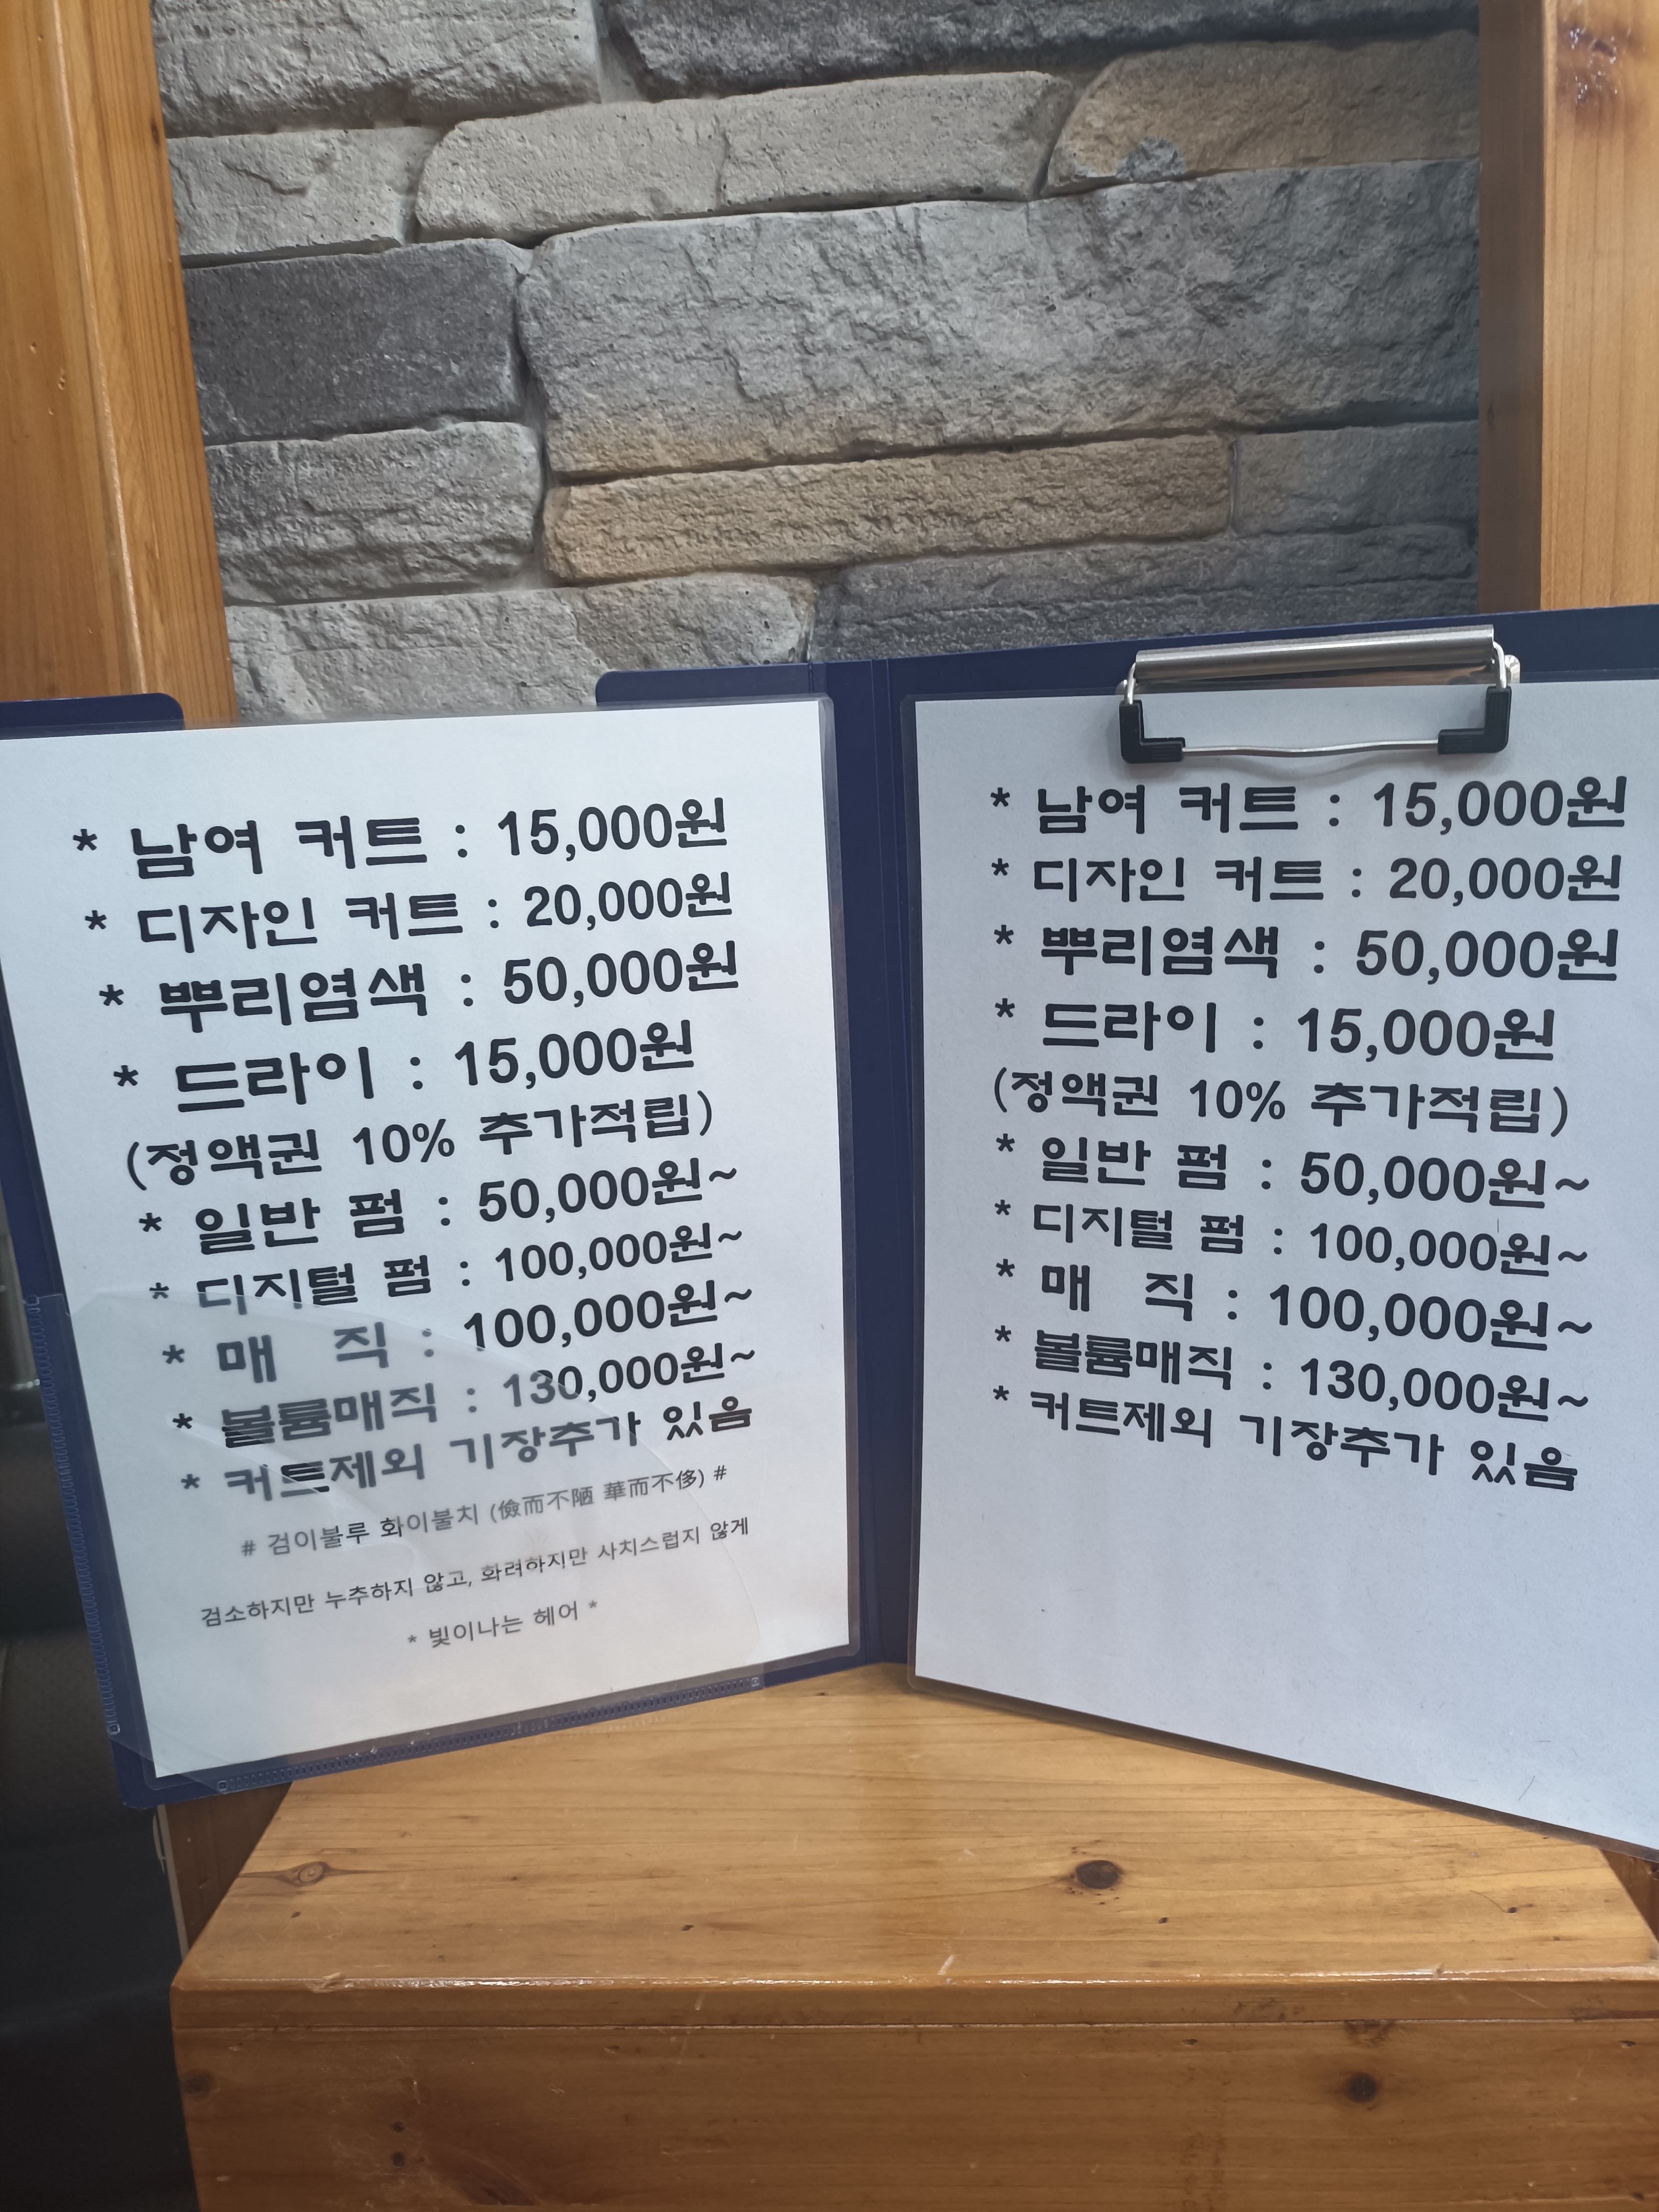 * 남여 커트 : 15,000원
* 디자인 커트 : 20,000원
* 뿌리염색 : 50,000원
* 드라이 : 15,000원
(정액권 10% 추가적립)
* 일반 펌 : 50,000원~
* 디지털 펌 : 100,000원~
* 매 직 : 100,000원~
* 볼륨매직 : 130,000원~
* 커트제외 기장추가 있음
# 검이불루 화이불치 (儉而不陋 華而不侈) #
검소하지만 누추하지 않고, 화려하지만 사치스럽지 않게
* 빛이나는 헤어 *
* 남여 커트 : 15,000원
* 디자인 커트 : 20,000원
* 뿌리염색 : 50,000원
* 드라이 : 15,000원
(정액권 10% 추가적립)
* 일반 펌 : 50,000원~
* 디지털 펌 : 100,000원~
* 매 직 : 100,000원~
* 볼륨매직 : 130,000원~
* 커트제외 기장추가 있음